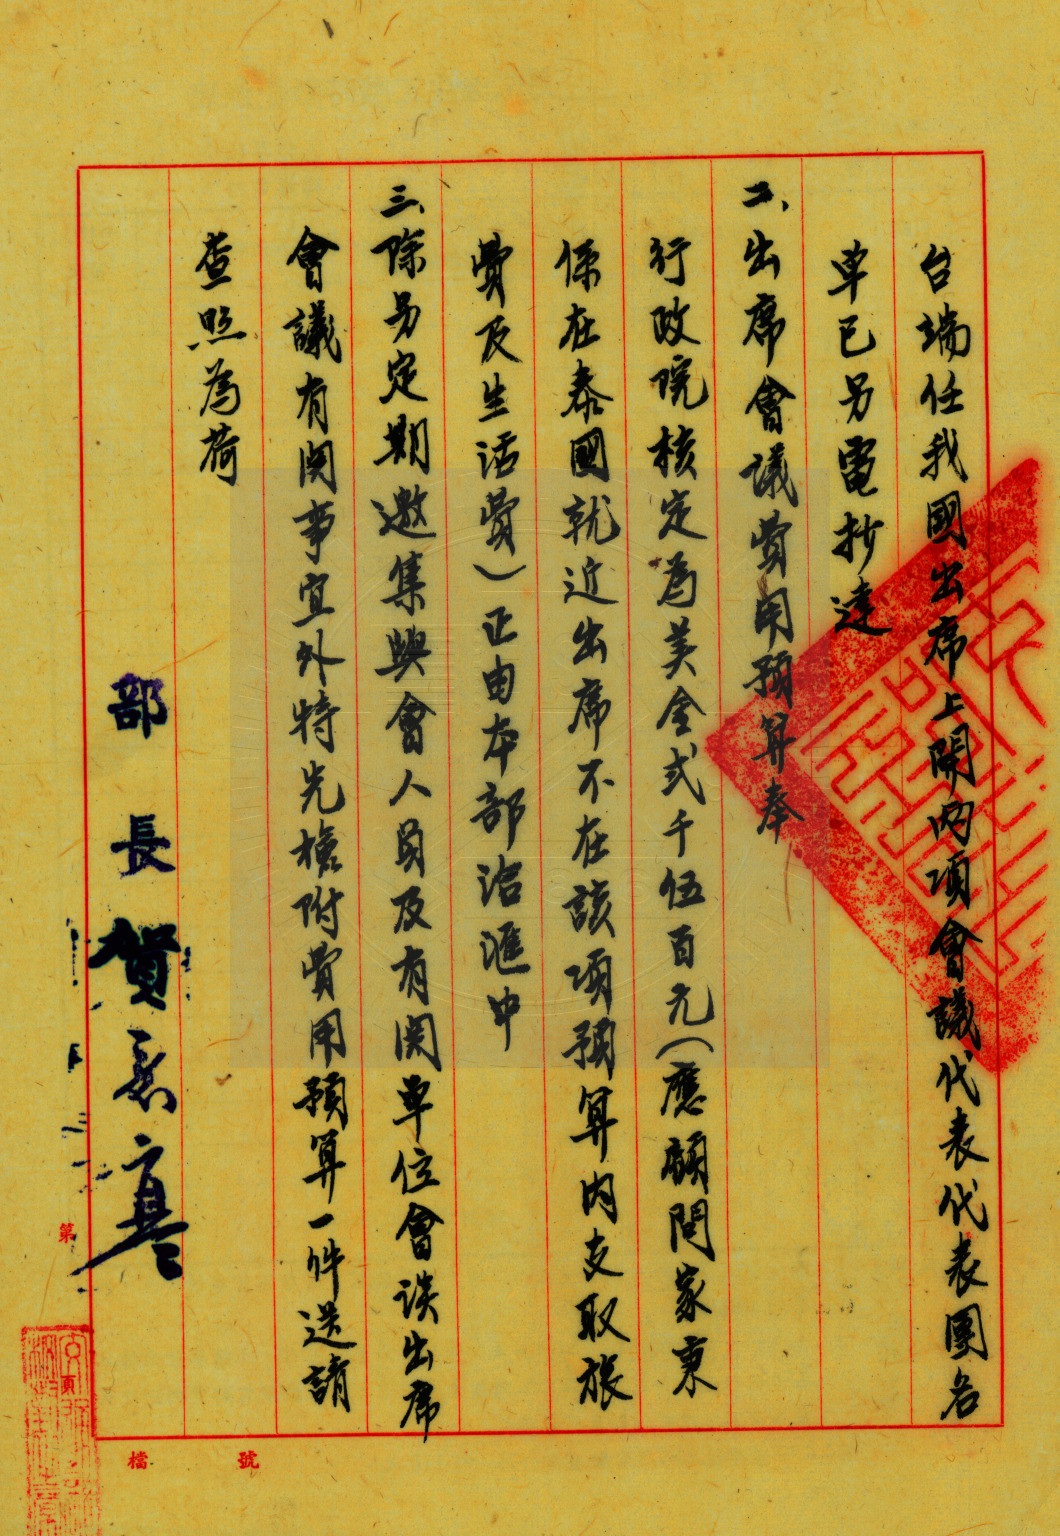 台端任我國出席上開內項會議代表代表團名
單已另電抄達
二、出席會議費用預算奉
行政院核定為美金弍千伍百元(應顧問家秉
係在泰國就近出席不在該項預算內支取旅
費及生活費)正由本部洽滙中
三、除另定期邀集與會人員及有関單位會談出席
會議有関事宜外特先檢附費用預算一件送請
查照為荷
部長賀衷寒
第
檔 號